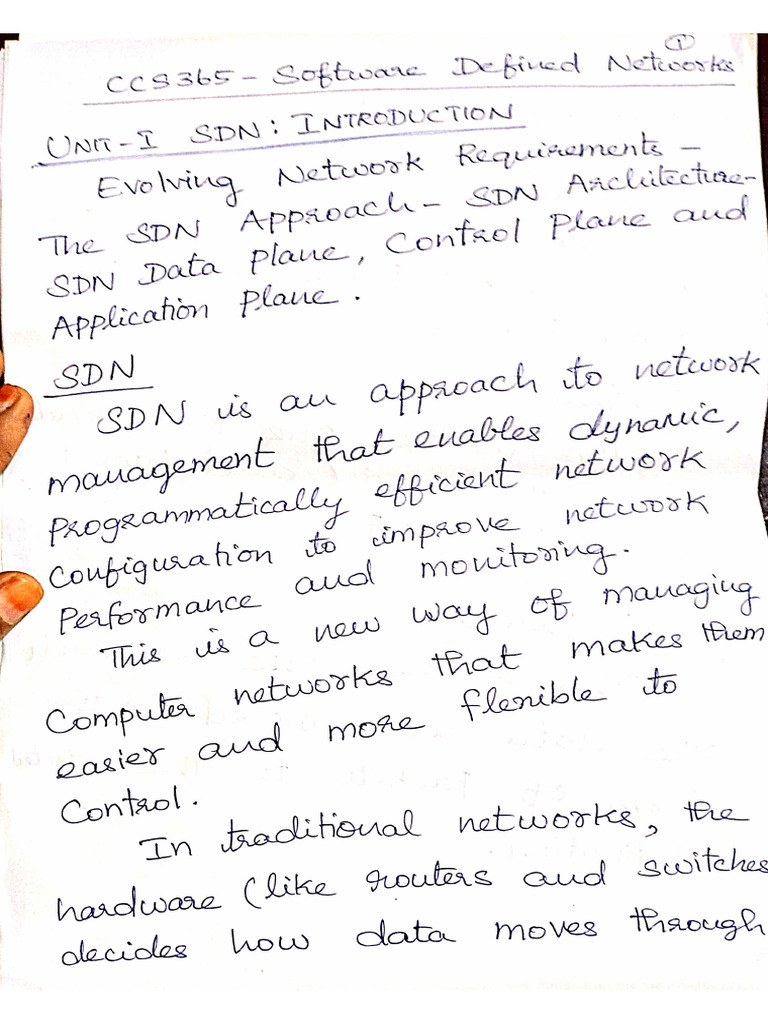 1
CCS365 - Software Defined Networks
UNIT-I SDN: INTRODUCTION
Evolving Network Requirements -
The SDN Approach - SDN Architecture-
SDN Data Plane, Control Plane and
Application Plane.
SDN
SDN is an approach to network
management that enables dynamic,
Programmatically efficient network
Configuration to improve network
Performance and monitoring.
This is a new way of managing
Computer networks that makes them
easier and more flenible to
Control.
In traditional networks, the
hardware (like routers and switches
decides how data moves through